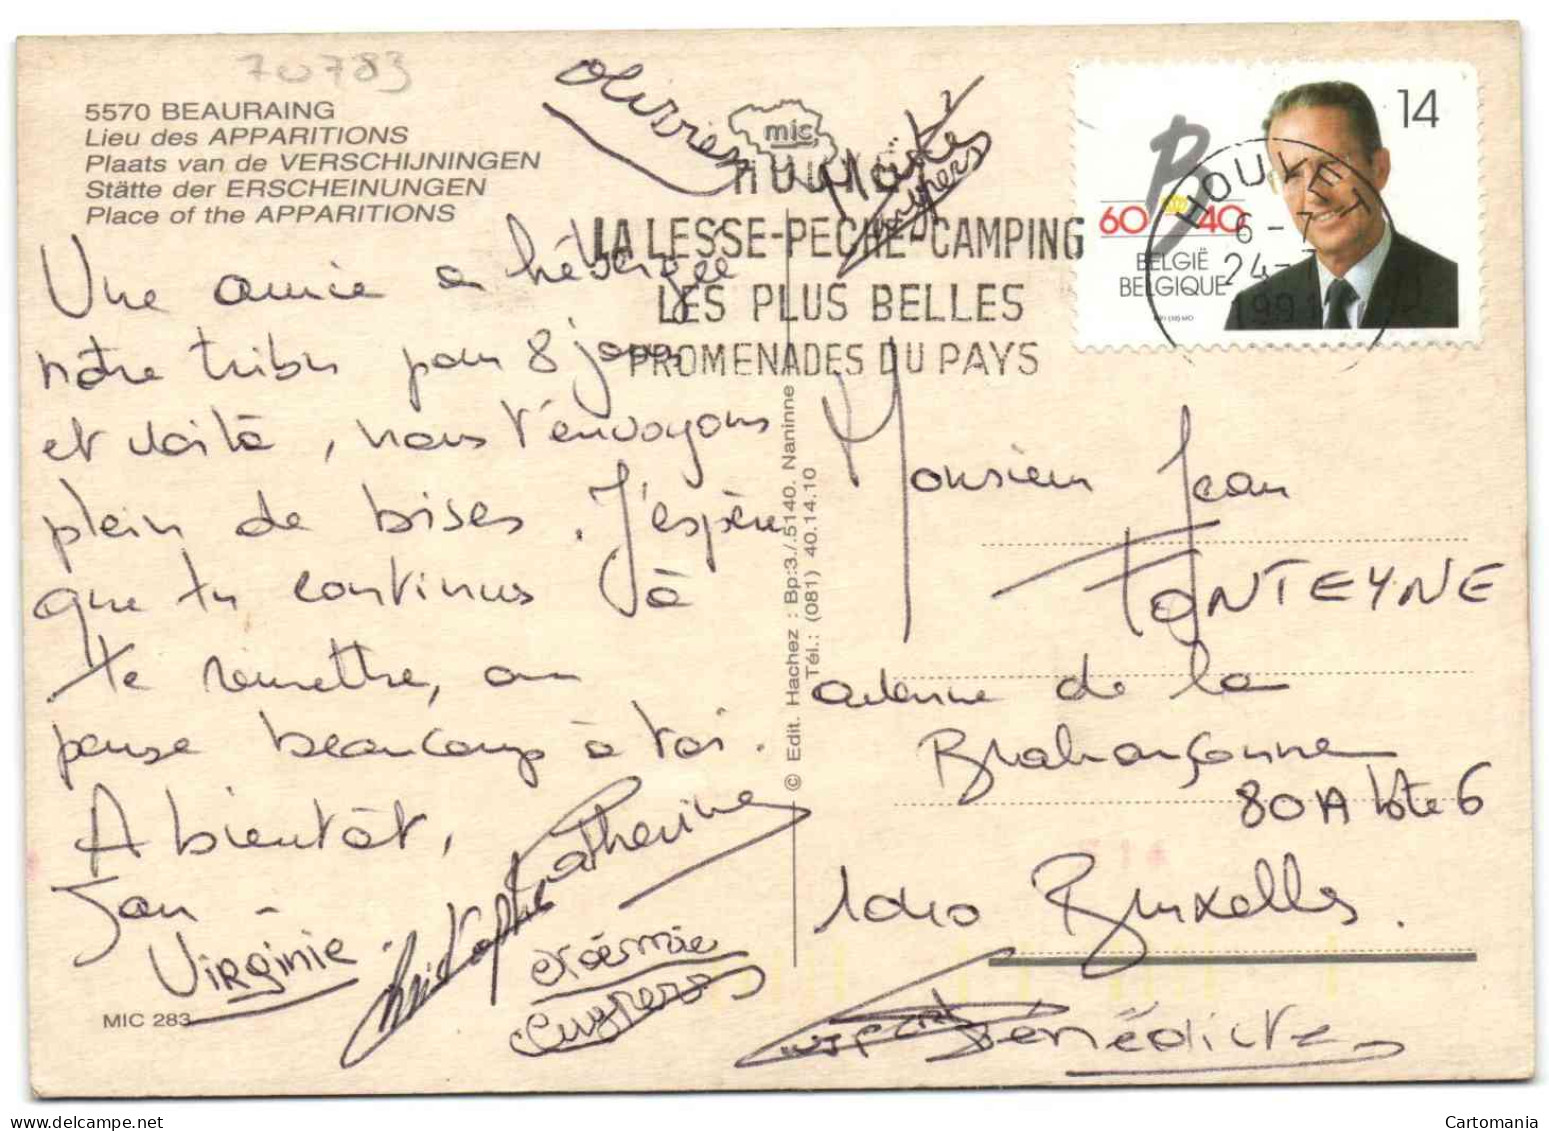 70783
5570 BEAURAING
Lieu des APPARITIONS
Plaats van de VERSCHIJNINGEN
Stätte der ERSCHEINUNGEN
Place of the APPARITIONS
Olivier
mic
Cuypers
HOUYET
LA LESSE-PECHE-CAMPING
LES PLUS BELLES
PROMENADES DU PAYS
14
60 40
BELGIË
BELGIQUE
HOUYET
6-7
24-
1991
Une amie a hébergé
notre tribu pour 8 jours
et voilà, nous t'envoyons
plein de bises. J'espère
que tu continues à
te remettre, on
pense beaucoup à toi.
A bientôt,
Jan -
Virginie.
Christophe
Catherine
Noémie
Cuypers
MIC 283
© Edit. Hachez : Bp:3./.5140. Naninne
Tél.: (081) 40.14.10
Monsieur Jean
FONTEYNE
avenue de la
Brabançonne
80A bte 6
1040 Bruxelles.
Bénédicte
Cartomania